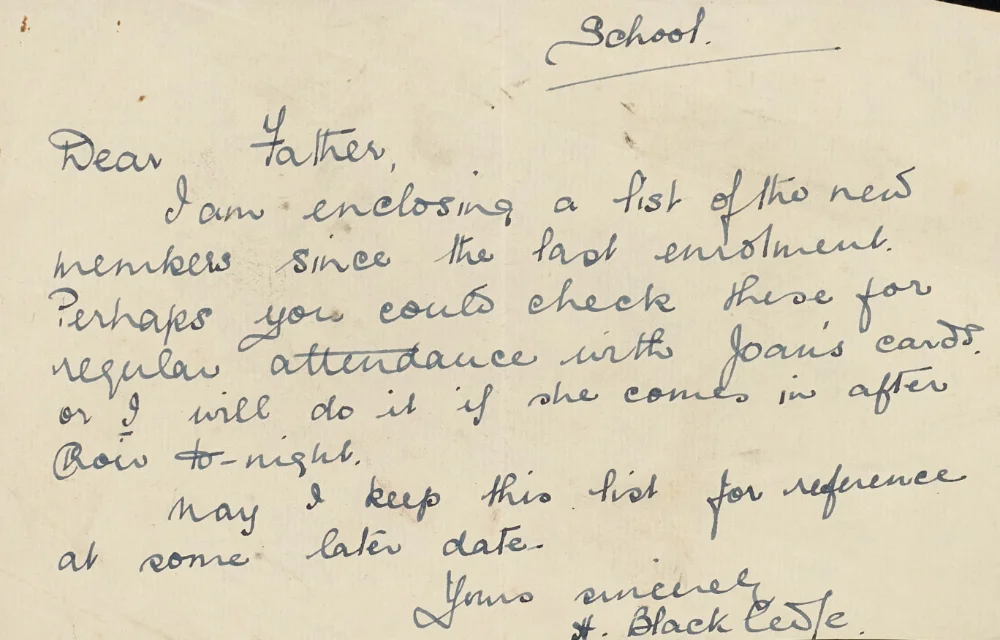 School.
Dear Father,
I am enclosing a list of the new
members since the last enrolment.
Perhaps you could check these for
regular attendance with Joan's cards.
or I will do it if she comes in after
Choir to-night.
May I keep this list for reference
at some later date.
Yours sincerely
H. Black